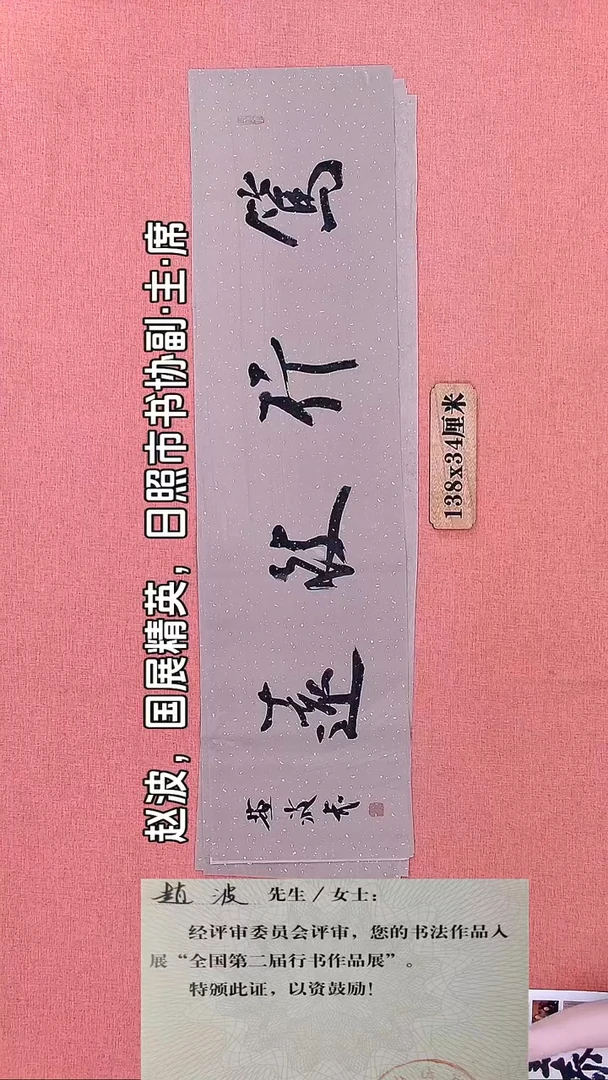 赵波，国展精英，日照市书协副·主·席
篤行致遠
138x34厘米
趙波 先生／女士：
经评审委员会评审，您的书法作品入
展“全国第二届行书作品展”。
特颁此证，以资鼓励！